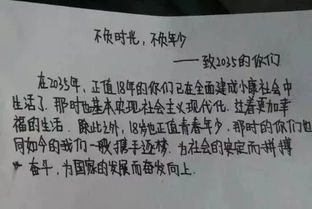 不负时光，不负年少
——致2035的你们
在2035年，正值18年的你们已在全面建成小康社会中
生活了，那时也基本实现社会主义现代化，过着更加幸
福的生活．除此之外，18岁也正值青春年少，那时的你们也
同如今的我们一般携手逐梦，为社会的安定而拼搏
奋斗，为国家的发展而奋发向上．